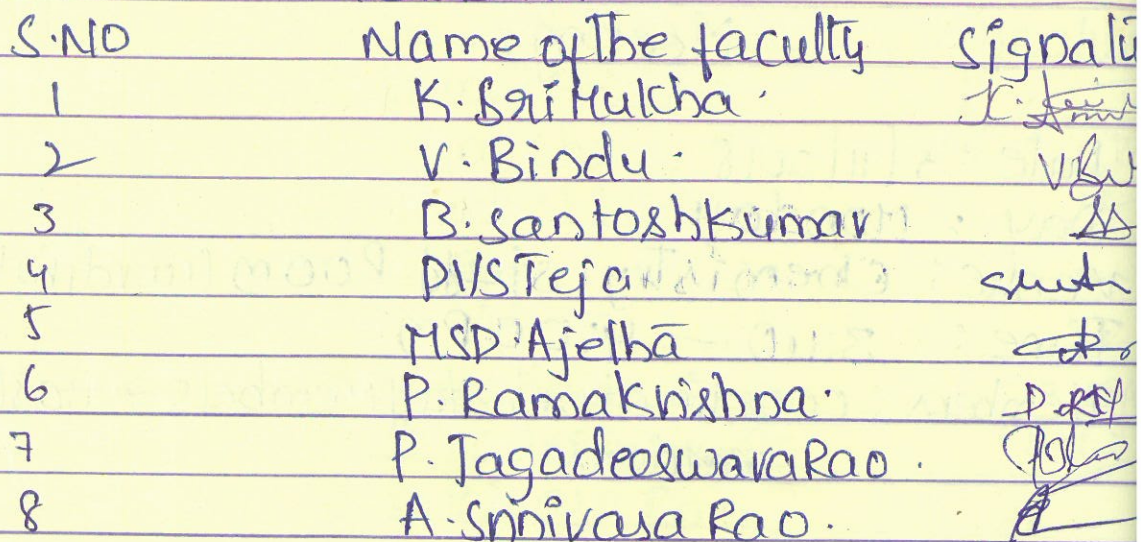 S.NO Name of the faculty Signatu
1 K. Sri Mukha.
2 V. Bindu. V Bi
3 B. Santoshkumar
4 DVS Teja
5 MSD. Ajetha
6 P. Ramakrishna.
7 P. JagadeeswaraRao.
8 A. Srinivasa Rao.